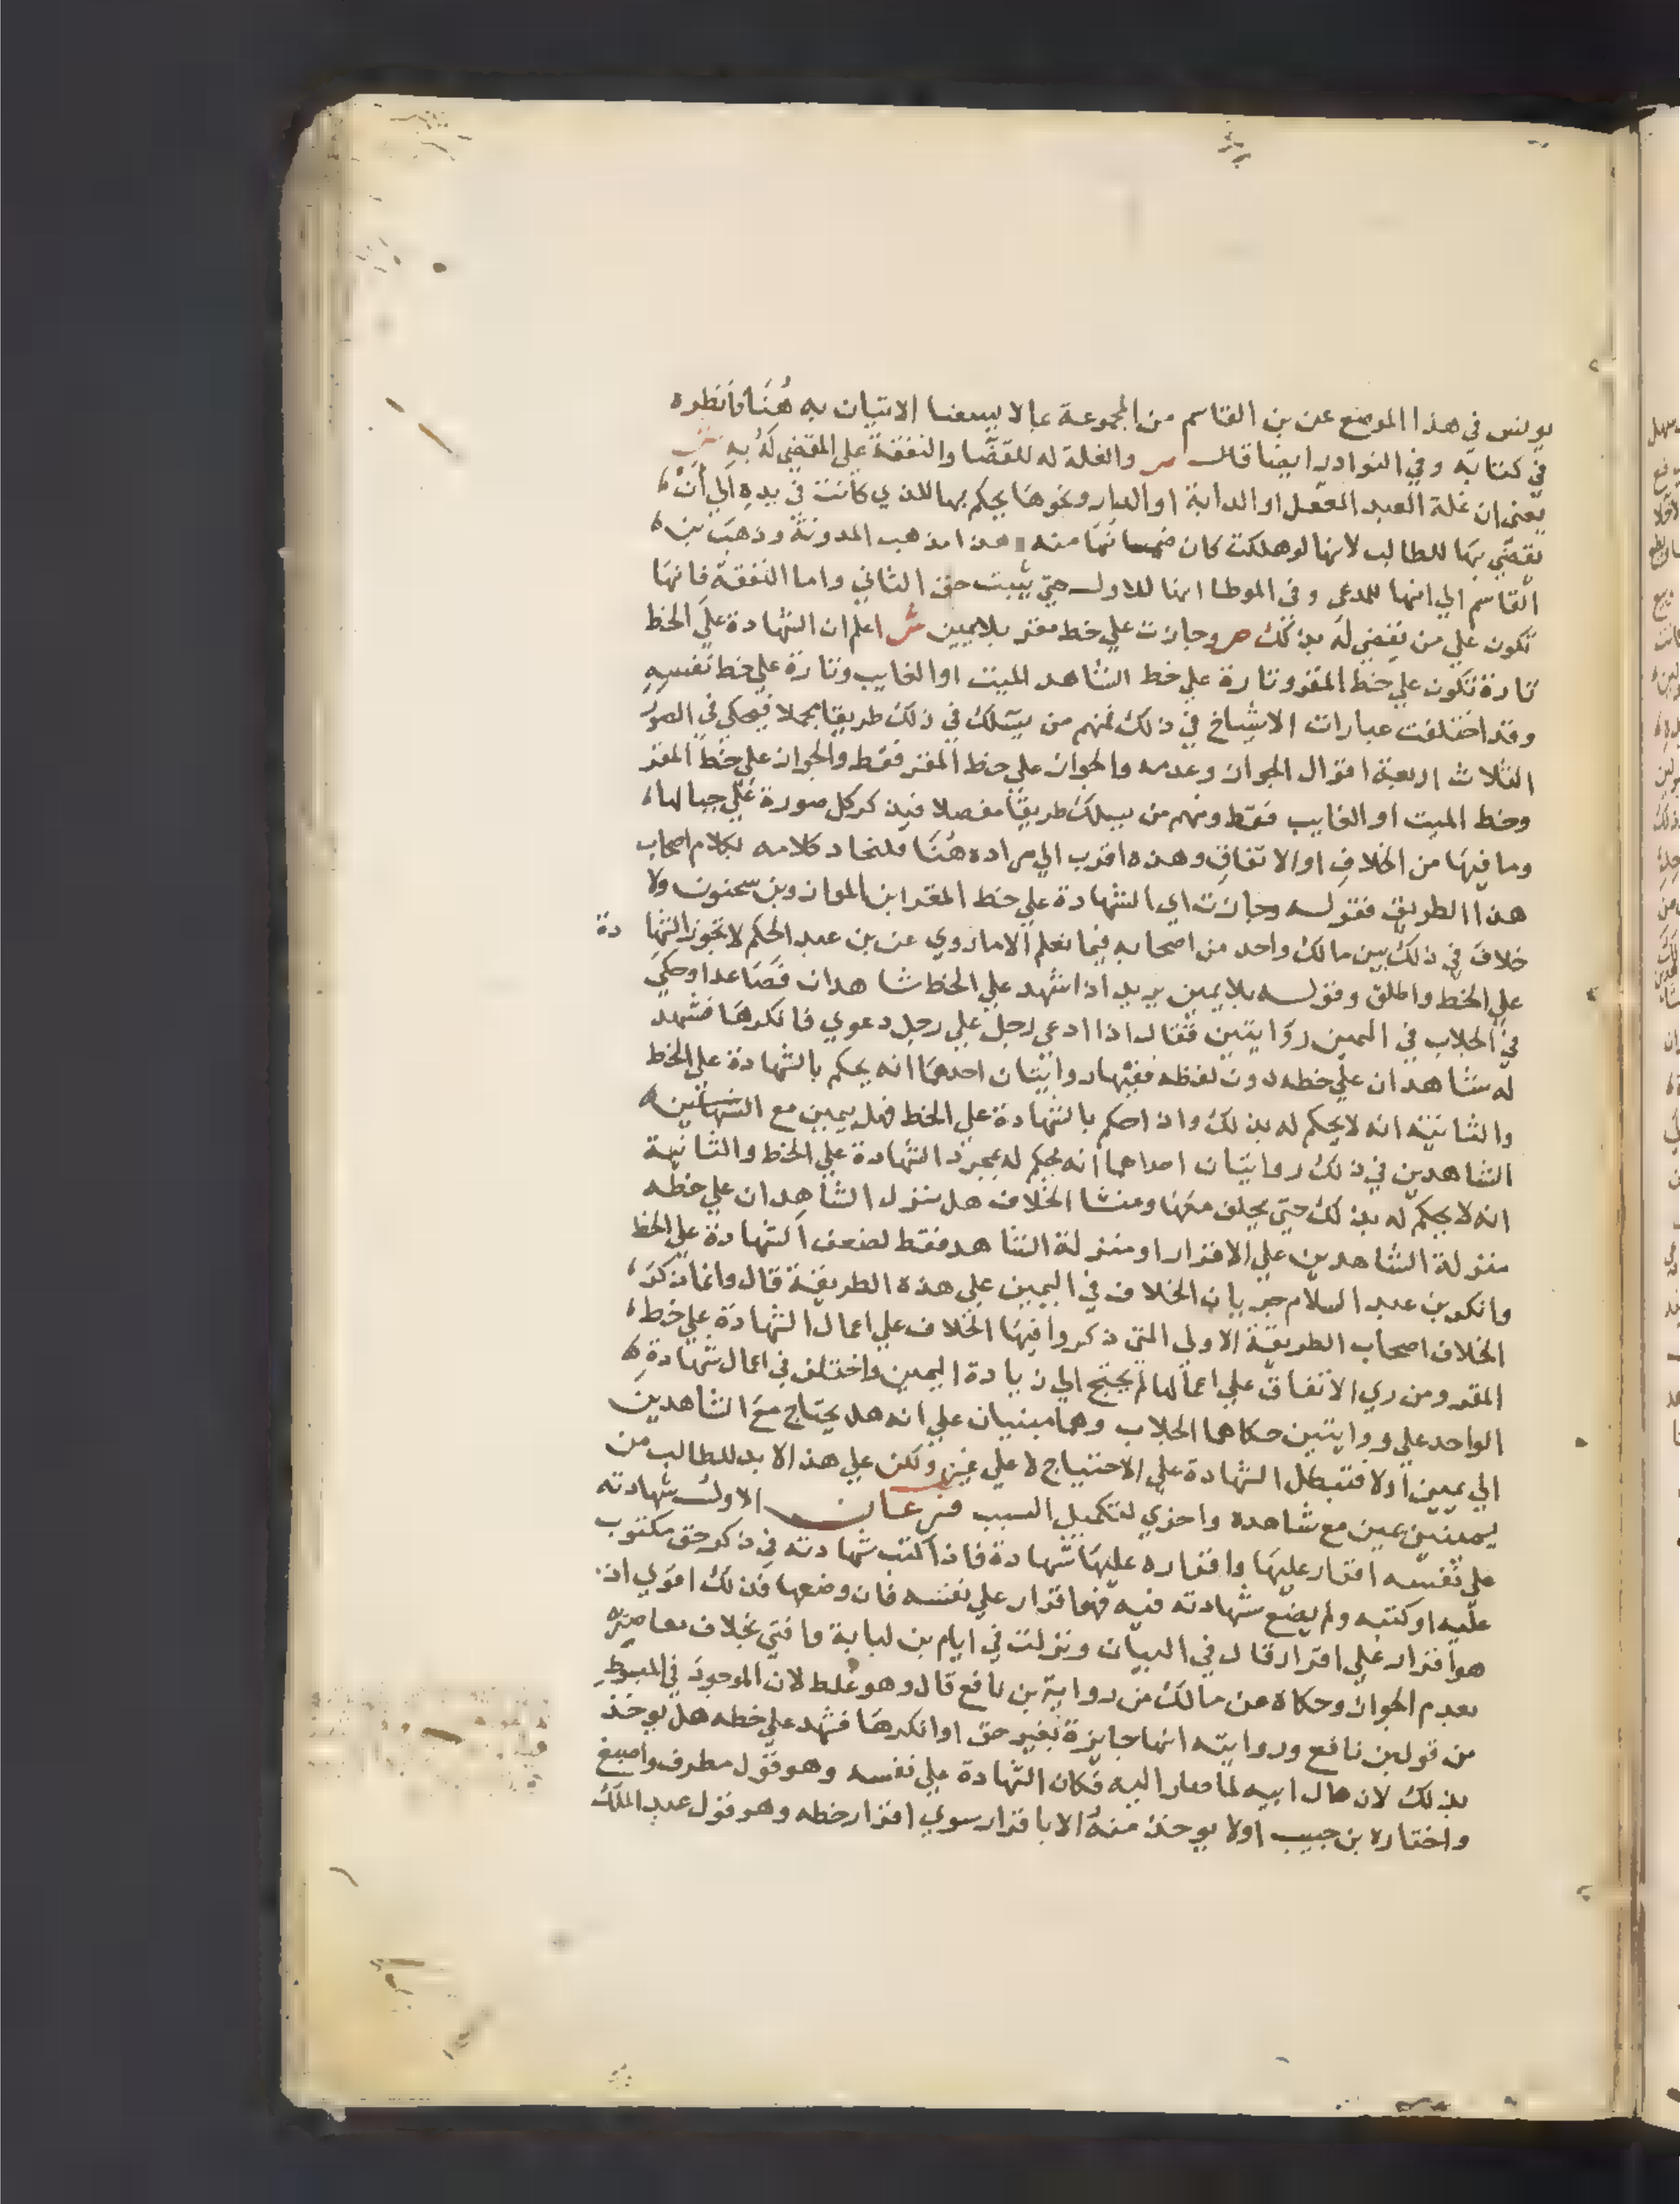 يونس في هذا الموضع عن بن القاسم من المجموعة ما لا يسعنا الاتيان به هُنَا فانظره
في كتابه وفي النوادر ايضا قال ص والغلة له للقضا والنفقة علي المقضي له به ش
يعني ان غلة العبد المعقل او الدابة او الدار ونحوها يحكم بها للذي كانت في يده الي ان
يقضي بها للطالب لانها لو هلكت كان ضمانها منه هذا مذهب المدونة وذهب بن
القاسم الي انها للمدعي وفي الموطا انها للاول حتي يثبت حق الثاني واما النفقة فانها
تكون علي من يقضي له بذلك ص وجازت علي خط مقر بلا يمين ش اعلم ان الشهادة علي الخط
تارة تكون علي خط المقر وتارة علي خط الشاهد الميت او الغايب وتارة علي خط نفسه
وقد اختلفت عبارات الاشياخ في ذلك فمنهم من يسلك في ذلك طريقا مجملا فيحكي في الصور
الثلاث اربعة اقوال الجواز وعدمه والجواز علي خط المقر فقط والجواز علي خط المقر
وخط الميت او الغايب فقط ومنهم من يسلك طريقا مفصلا فيذكر كل صورة علي حيالها
وما فيها من الخلاف او الاتفاق وهذه اقرب الي مراده هُنَا فلنحاد كلامه بكلام اصحاب
هذا الطريق فقوله وجازت اي الشهادة علي خط المقر ابن المواز وبن سحنون ولا
خلاف في ذلك بين مالك واحد من اصحابه فيما نعلم الا ما روي عن بن عبد الحكم لا تجوز الشها دة
علي الخط واطلق وقوله بلا يمين يريد اذا شهد علي الخط شاهدان فصاعدا وحكي
في الجلاب في اليمين روايتين فقال اذا ادعي رجل علي رجل دعوي فانكرها فشهد
له شاهدان علي خطه دون لفظه ففيها روايتان احدهما انه يحكم بالشهادة علي الخط
والثانية انه لا يحكم له بذلك واذا حكم بالشهادة علي الخط فهل يمين مع
الشاهدين في ذلك روايتان احداهما انه يحكم له بمجرد الشهادة علي الخط والثانية
انه لا يحكم له بذلك حتي يحلف معها ومنشا الخلاف هل ينزل الشاهدان علي خطه
منزلة الشاهدين علي الاقرار او منزلة الشاهد فقط لضعف الشهادة علي الخط
وانكر بن عبد السلام جريان الخلاف في اليمين علي هذه الطريقة قال وانما ذكر
الخلاف اصحاب الطريقة الاولي التي ذكروا فيها الخلاف علي اعمال الشهادة علي خط
المقر ومن ري الاتفاق علي اعمالها لم يحتج الي زيادة اليمين واختلف في اعمال شهادة
الواحد علي روايتين حكاهما الجلاب وهما مبنيان علي انه هل يحتاج مع الشاهدين
الي يمين اولا فتبطل الشهادة علي الاحتياج لا علي غيره ولكن علي هذا لا بد للطالب من
يمينين يمين مع شاهده واخري لتكميل السبب فرعان الاول شهادته
علي نفسه اقرار عليها واقراره عليها شهادة فاذا كتب شهادته في ذكر حق مكتوب
عليه او كتبه ولم يضع شهادته فيه فهو اقرار علي نفسه فان وضعها فذلك اقوي اذ
هو اقرار علي اقرار قال في البيان ونزلت في ايام بن لبابة وافتي بخلاف معاصريه
بعدم الجواز وحكاه عن مالك من رواية بن نافع قال وهو غلط لان الموجود في المبسوط
من قول بن نافع وروايته انها جايزة بغير حق او انكرها فشهد علي خطه هل يوخذ
بذلك لان مال ابيه لما صار اليه فكان الشهادة علي نفسه وهو قول مطرف واصبغ
واختاره بن حبيب اولا يوخذ منه الا باقرار سوي اقرار خطه وهو قول عبد الملك